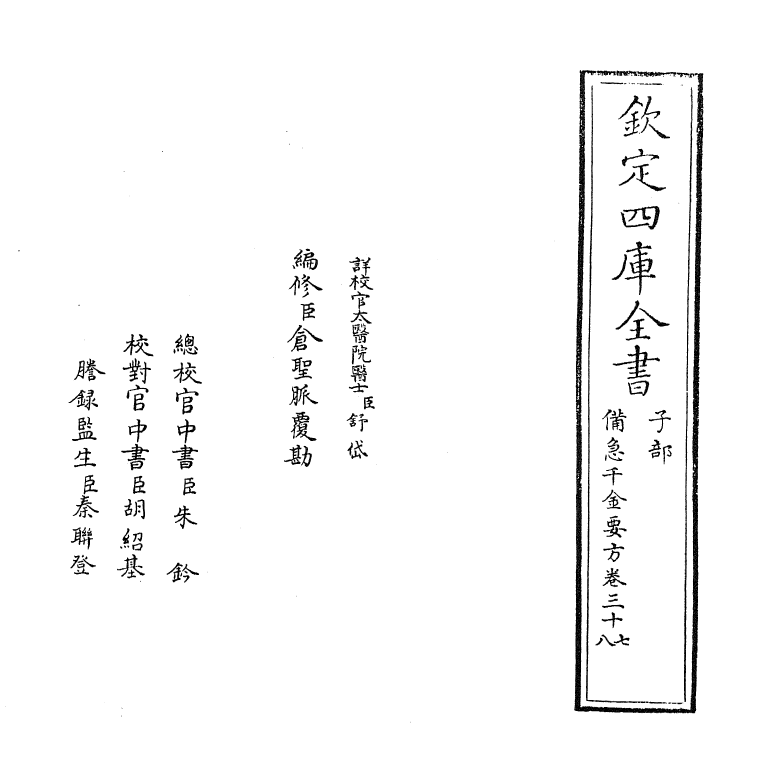 欽定四庫全書
子部
備急千金要方卷三十七八
詳校官太醫院醫士臣舒岱
編修臣倉聖脈覆勘
總校官中書臣朱鈐
校對官中書臣胡紹基
謄録監生臣秦聯登